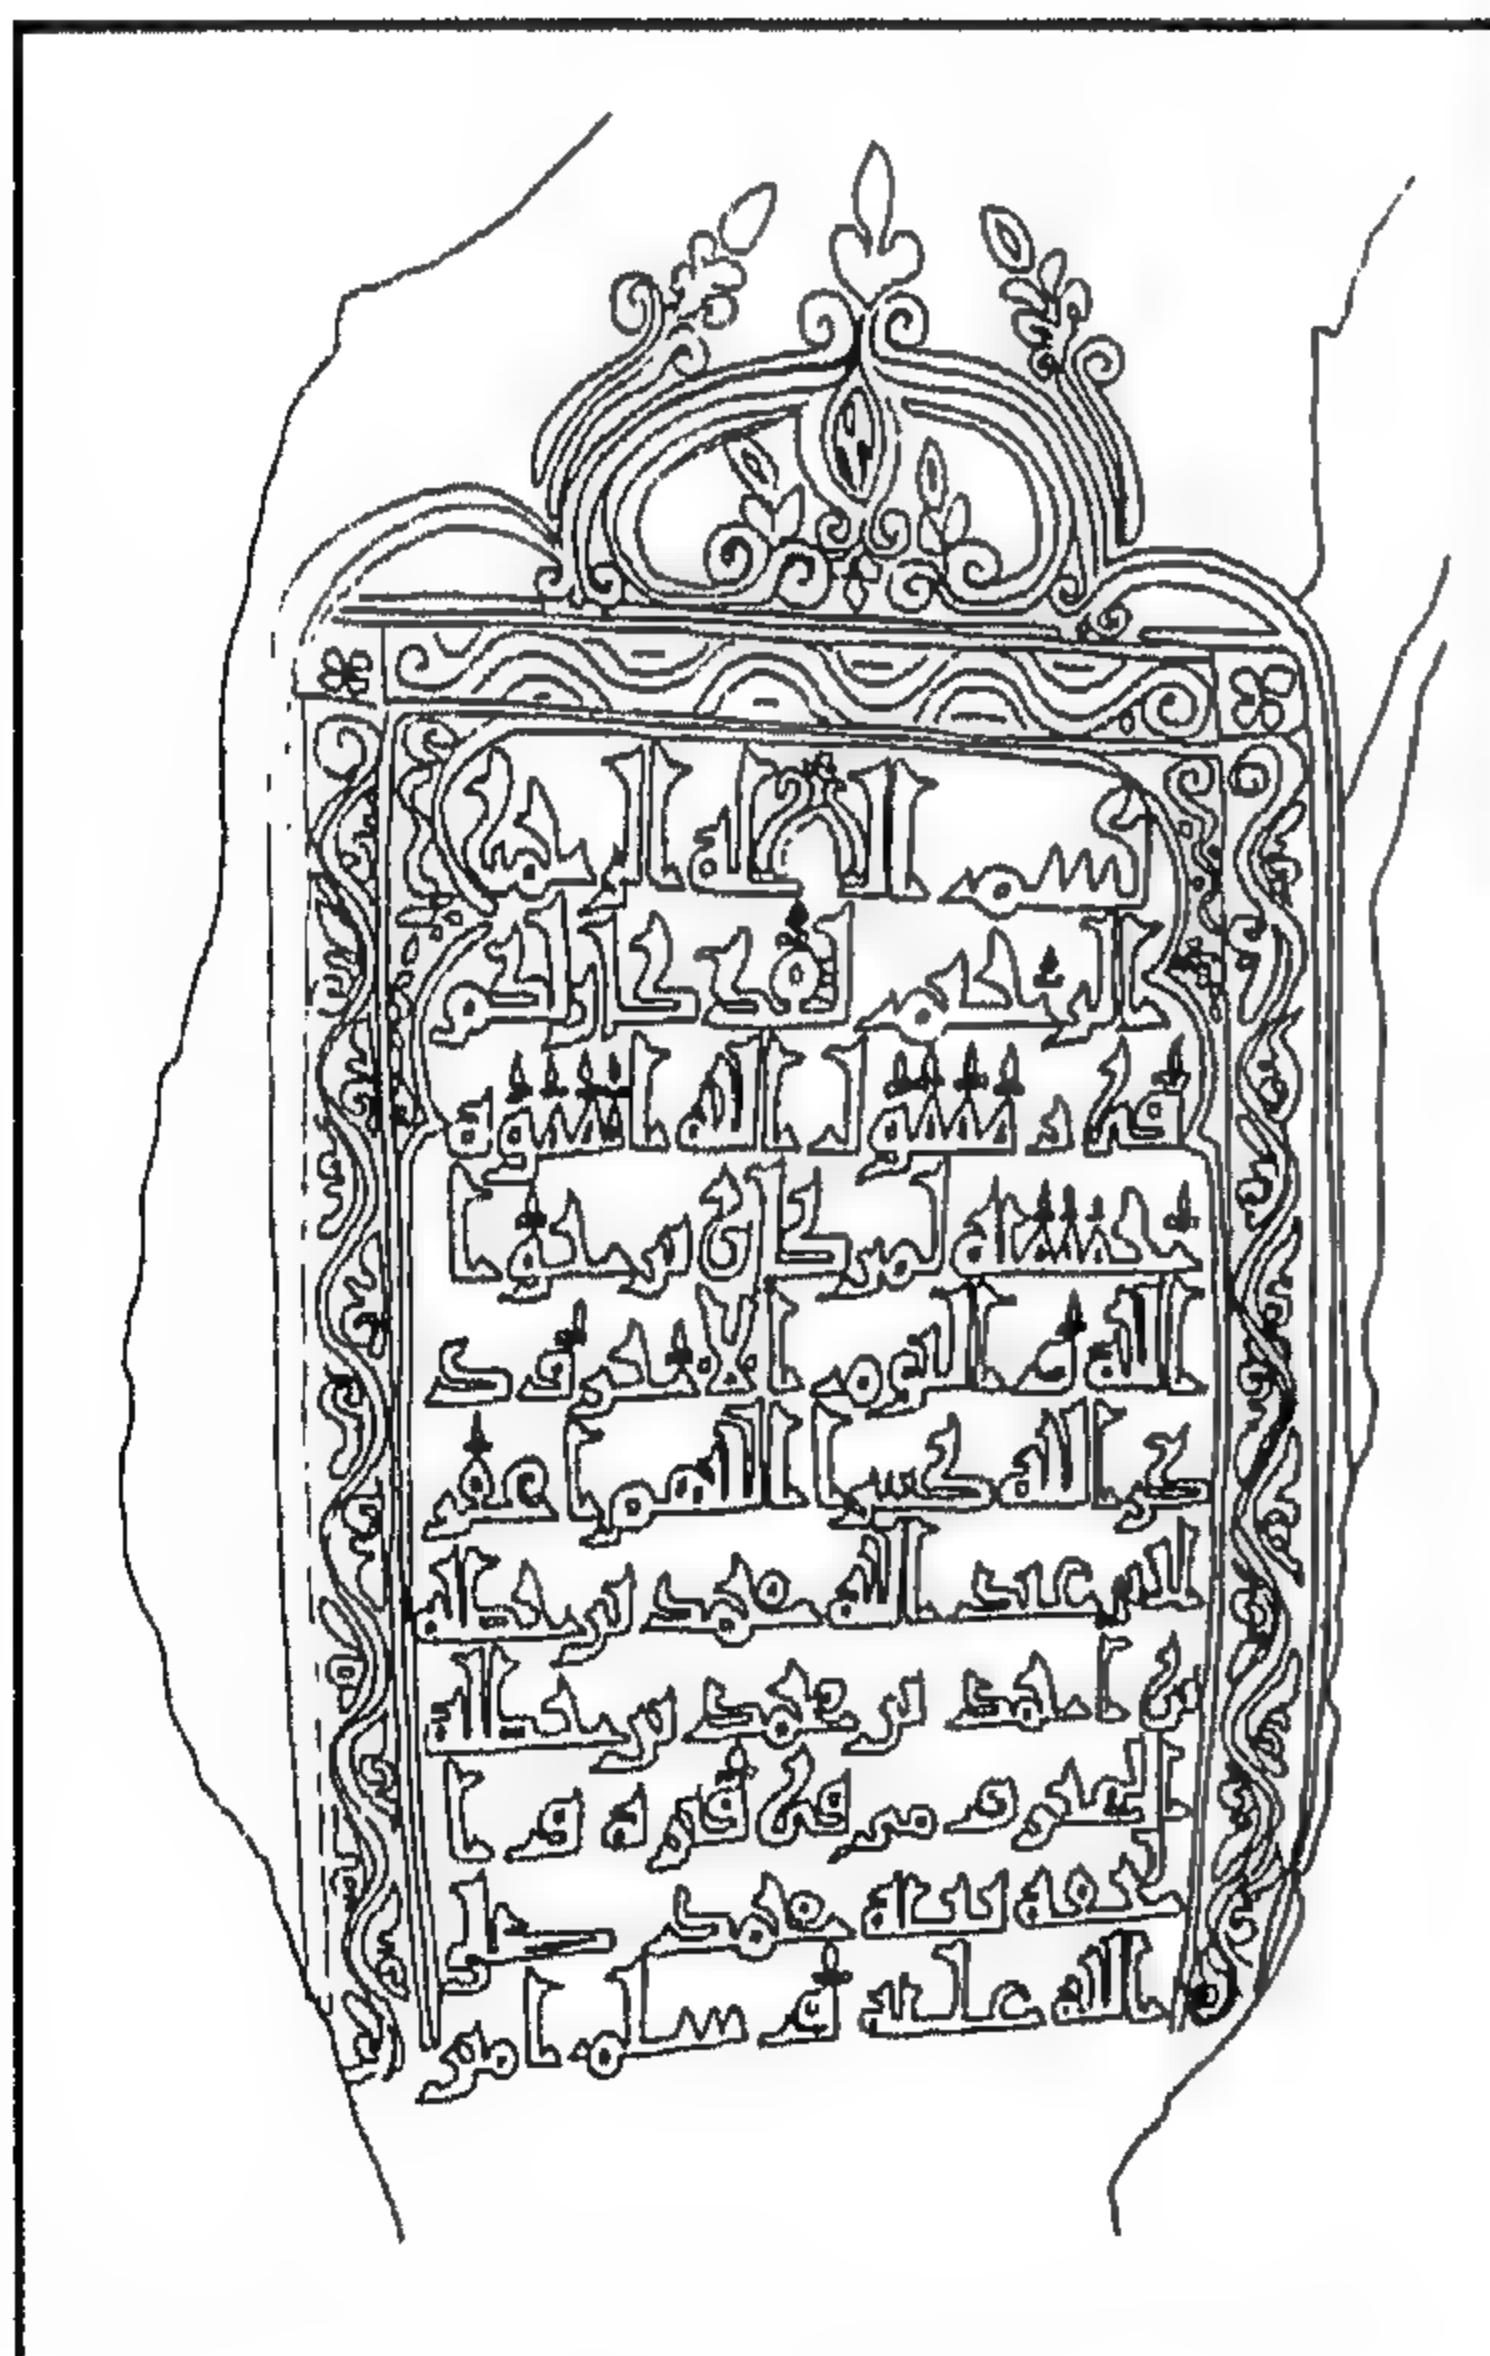 بسم الله الرحمن
الرحيم لقد كان لكم
في رسول الله اسوة
حسنة لمن كان يرجوا
الله واليوم الاخر وذكـ
ـر الله كثيرا اللهم اغفر
عبد الله محمد بن عبد الله
بن احمد بن محمد بن عبد الله
في قبره وا
لحقه بنبيه محمد صلى
الله عليه وسلم امين